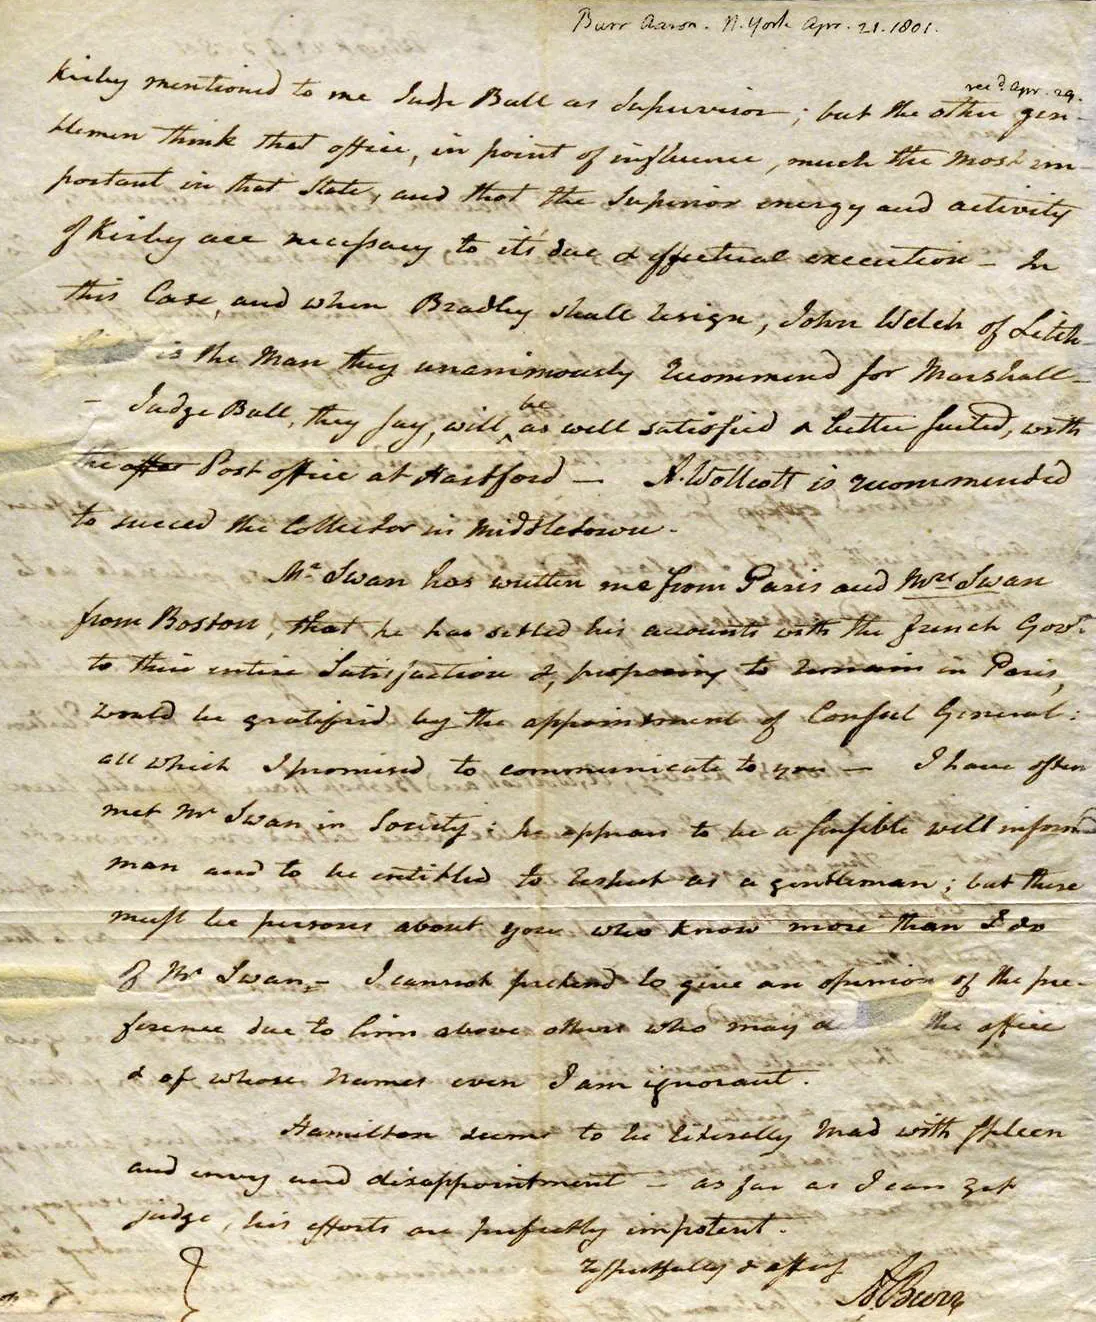 Burr Aaron. N. York Apr. 21. 1801.
recd. Apr. 29.
Kirby mentioned to me Judge Bull as Supervisor; but the other gen-
tlemen think that office, in point of influence, much the most im-
portant in that State, and that the Superior energy and activity
of Kirby are necessary to it's due & effectual execution — In
this Case, and when Bradley shall resign, John Welch of Litch-
is the Man they unanimously recommend for Marshall —
— Judge Bull, they say, will be as well satisfied & better suited, with
the offic Post office at Hartford — A. Wollcott is recommended
to succeed the Collector in Middletown.
Mr Swan has written me from Paris and Mrs Swan
from Boston, that he has setled his accounts with the french Govt.
to their entire Satisfaction &, proposing to remain in Paris,
would be gratified by the appointment of Consul General:
all which I promised to communicate to you — I have often
met Mr Swan in Society: he appears to be a sensible well informd
man and to be entitled to respect as a gentleman; but there
must be persons about you who know more than I do
of Mr Swan — I cannot pretend to give an opinion of the pre-
ference due to him above others who may a the office
& of whose names even I am ignorant.
Hamilton seems to be literally Mad with spleen
and envy and disappointment — as far as I can yet
judge, his efforts are perfectly impotent.
respectfully & affecy
A. Burr